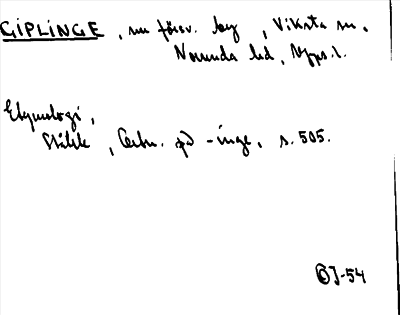 GIPLINGE, nu försv. by, Viksta sn.
Norunda hd, Upps. l.
Etymologi,
Ståhle, Ortn. på -inge, s. 505.
OJ-54